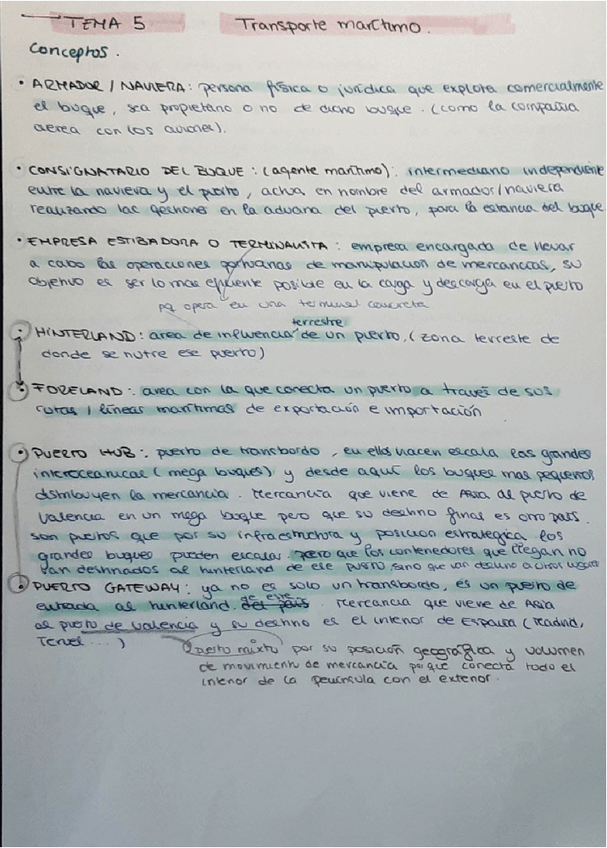 TEMA 5 Transporte marítimo.
Conceptos.
• ARMADOR / NAVIERA: persona física o jurídica que explota comercialmente
el buque, sea propietario o no de dicho buque. (como la compañía
aerea con los aviones).
• CONSIGNATARIO DEL BUQUE: (agente marítimo): intermediario independiente
entre la naviera y el puerto, actua en nombre del armador/naviera
realizando las gestiones en la aduana del puerto, para la estancia del buque
• EMPRESA ESTIBADORA O TERMINALISTA: empresa encargada de llevar
a cabo las operaciones portuarias de manipulación de mercancías, su
objetivo es ser lo mas eficiente posible en la carga y descarga en el puerto
pq opera en una terminal concreta
terrestre
• HINTERLAND: area de influencia de un puerto, (zona terreste de
donde se nutre ese puerto)
• FORELAND: area con la que conecta un puerto a través de sus
rutas / líneas marítimas de exportación e importación
• PUERTO HUB: puerto de transbordo, en ellos hacen escala los grandes
(mega buques) y desde aquí los buques mas pequeños
distribuyen la mercancía. Mercancía que viene de Asia al puerto de
Valencia en un mega buque pero que su destino final es otro país.
son puertos que por su infraestructura y posición estrategica los
grandes buques pueden escalar. pero que los contenedores que llegan no
van destinados al hinterland de ese puerto, sino que van destino a otros
• PUERTO GATEWAY: ya no es solo un transbordo, es un puerto de
entrada al hinterland de este del país. Mercancía que viene de Asia
al puerto de Valencia y su destino es el interior de España (Madrid,
Teruel...)
puerto mixto por su posición geográfica y volumen
de movimiento de mercancía porque conecta todo el
interior de la península con el exterior.